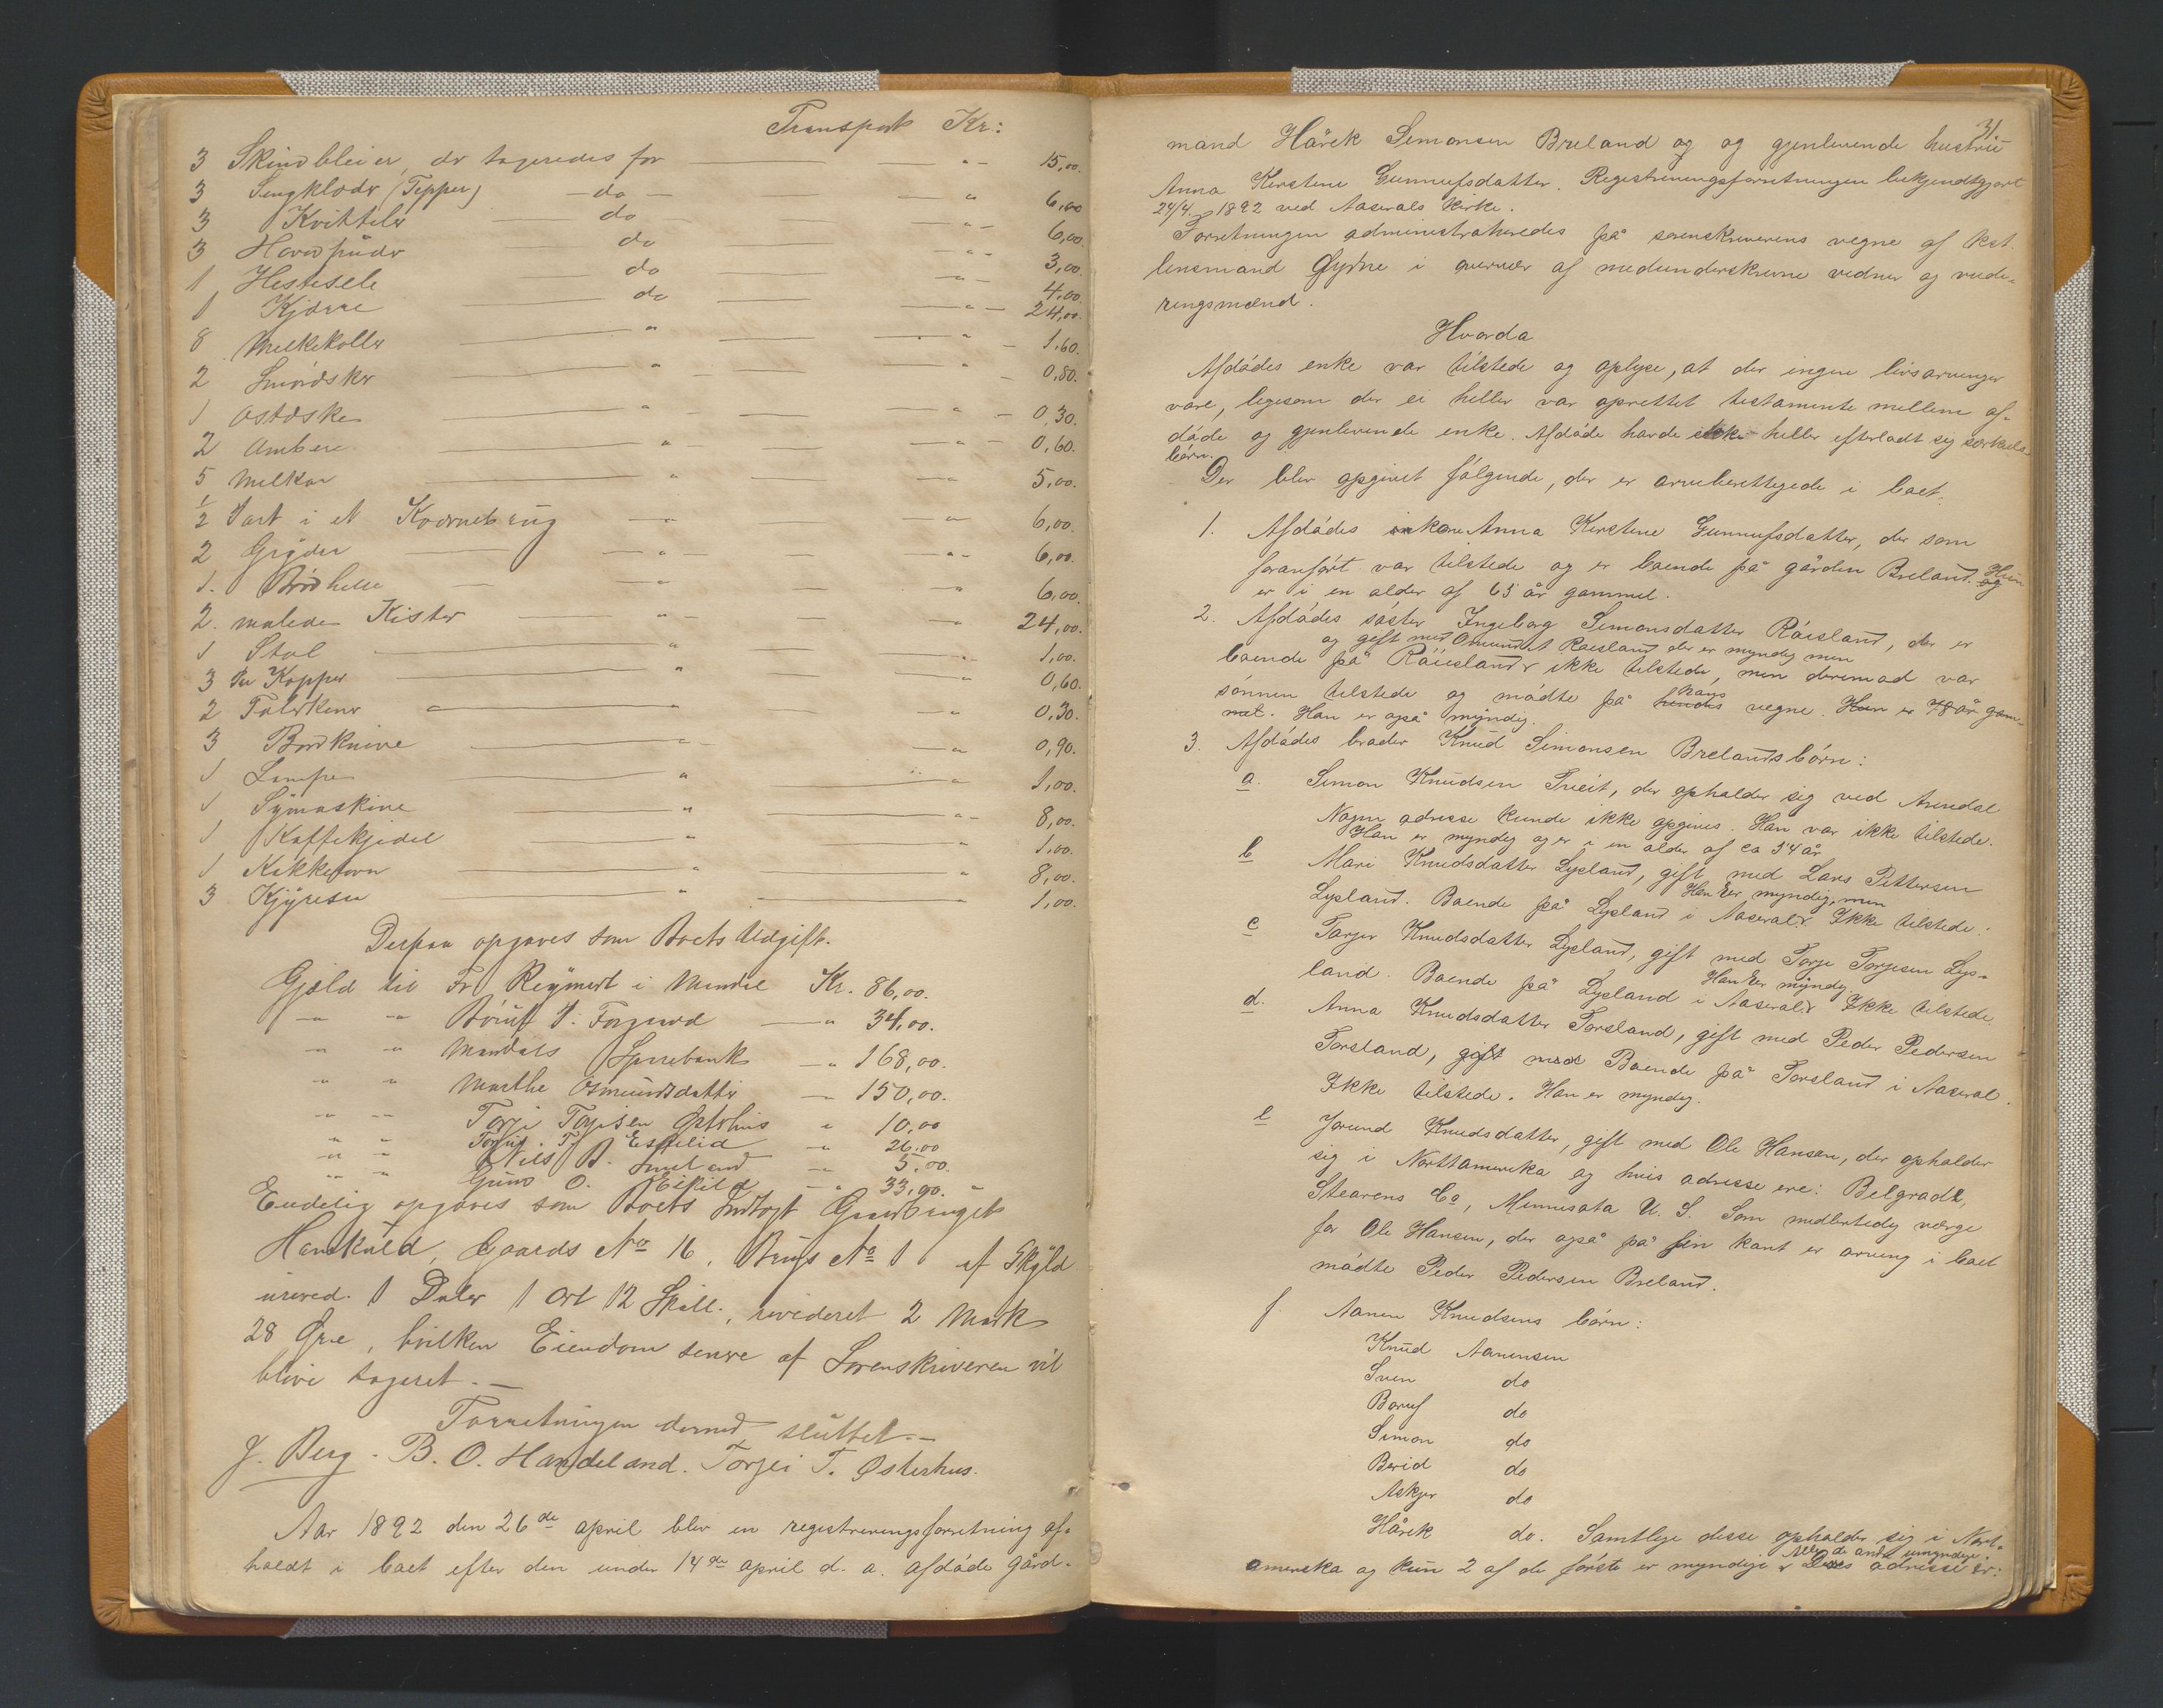 Transport Kr:
3 Skindbleier, der tageredes for — " - 15,00.
3 Sengklæder (Tepper) — do — — " 6,00
3 Kvitteler — do — " - 6,00.
3 Hovedpuder do " - 3,00.
1 Hestesele — do — " - 4,00.
1 Kjærre — do — " - 24,00.
8 Melkekoller — " — " - 1,60.
2 Smørdsker — " - — " - 0,80.
1 Ostæske — " - — " - 0,30.
2 Ambere — " - — " - 0,60.
5 Melkar — " — — " 5,00.
1/2 Part i et Kværnebrug — " — " 6,00.
2 Gryder — " - — " - 6,00.
1. Brødhelle — " — " 6,00.
2. malede Kister — " - — " 24,00.
1 Stol — " — " 1,00.
3 Par Kopper — " — " 0,60.
2 Talerkener — " — " 0,30.
3 Bordknive — " — " 0,90.
1 Lampe — " — " 1,00.
1 Symaskine — " — " - 8,00.
1 Kaffekjedel — " — " 1,00.
1 Kakkelovn — " — " 8,00.
3 Kjyresu — " — 1,00.
Derpaa opgaves som Boets Udgift.
Gjæld til Fr. Reymert i Mandal Kr. 86,00.
" " Børuf T. Fosserod — " 34,00.
" " Mandals Sparebank — " 168,00.
" " Marthe Osmundsdatter — 150,00.
" " Torje Torjisen Østerhus " 10,00
" " Torjus T. Eskelid " 26,00
" " Nils B. Smeland — " 5,00.
" " Gund O. Eikild — " 33,90. "
Endelig opgaves som Boets Indtægt Gaardbruget
Hanskald, Gaards No 16, Brugs No 1 af Skyld
urevid. 1 Daler 1 Ort 12 Skill., revideret 2 Mark
28 Øre, hvilken Eiendom senere af Sorenskriveren vil
blive tageret. —
Forretningen dermed sluttet. —
J. Berg. B. O. Handeland. Torjei T. Østerhus.
Aar 1892 den 26de april blev en registreringsforretning af-
holdt i boet efter den under 14de april d. a. afdøde gård-
31.
mand Hårek Simonsen Breland og og gjenlevende hustru
Anna Kirstene Gunnufsdatter. Registreringsforretningen bekjendtgjort
24/4 1892 ved Aaserals Kirke.
Forretningen administreredes på sorenskriverens vegne af kst.
lensmand Gyðne i overvær af medunderskrevne vidner og vude-
ringsmænd.
Hvorda
Afdødes enke var tilstede og oplyse, at der ingen livsarvinger
vare, ligesom der ei heller var oprettet testamente mellem af-
døde og gjenlevende enke. Afdøde havde ikke heller efterladt sig særkuls-
børn.
Der blev opgivet følgende, der er arveberettigede i boet.
1. Afdødes enke Anna Kirstene Gunnufsdatter, der som
foranført var tilstede og er boende på gården Breland. og Hun
er i en alder af 65 år gammel.
2. Afdødes søster Ingeborg Simonsdatter Röisland, der er
og gift med Omund A Röisland der er myndig men
boende på Röiisland & ikke tilstede, men derimod var
sønnen tilstede og mødte på hendes hans vegne. Han er 78 år gam-
mel. Han er også myndig.
3. Afdødes broder Knud Simonsen Brelands børn:
a. Simon Knudsen Tveit, der opholder sig ved Arendal
Nogen adresse kunde ikke opgives. Han var ikke tilstede.
Han er myndig og er i en alder af ca 54 år
b Mari Knudsdatter Lysland, gift med Lars Pettersen
Lysland. Boende på Lysland i Aaseral. Ikke tilstede.
Han er myndig, men
c Torjer Knudsdatter Lysland, gift med Torje Torjesen Lys-
land. Boende på Lysland i Aaseral. Ikke tilstede.
Han er myndig.
d. Anna Knudsdatter Torsland, gift med Peder Pedersen
Torsland, gift med Boende på Torsland i Aaseral.
Ikke tilstede. Han er myndig.
e Jorund Knudsdatter, gift med Ole Hansen, der opholder
sig i Nortamerika og hvis adresse ere: Belgrade,
Stearens Co, Minnesota U. S. Som midlertidig værge
for Ole Hansen, der også på sin kant er arving i boet
mødte Peder Pedersen Breland.
f. Aanen Knudsens børn:
Knud Aanensen
Sven do
Boruf do
Simon do
Berid do
Askjer do
Hårek do. Samtlige disse opholder sig i Nort-
amerika og kun 2 af de første er myndige & Deres adresse er:
Alle de andre umyndige.